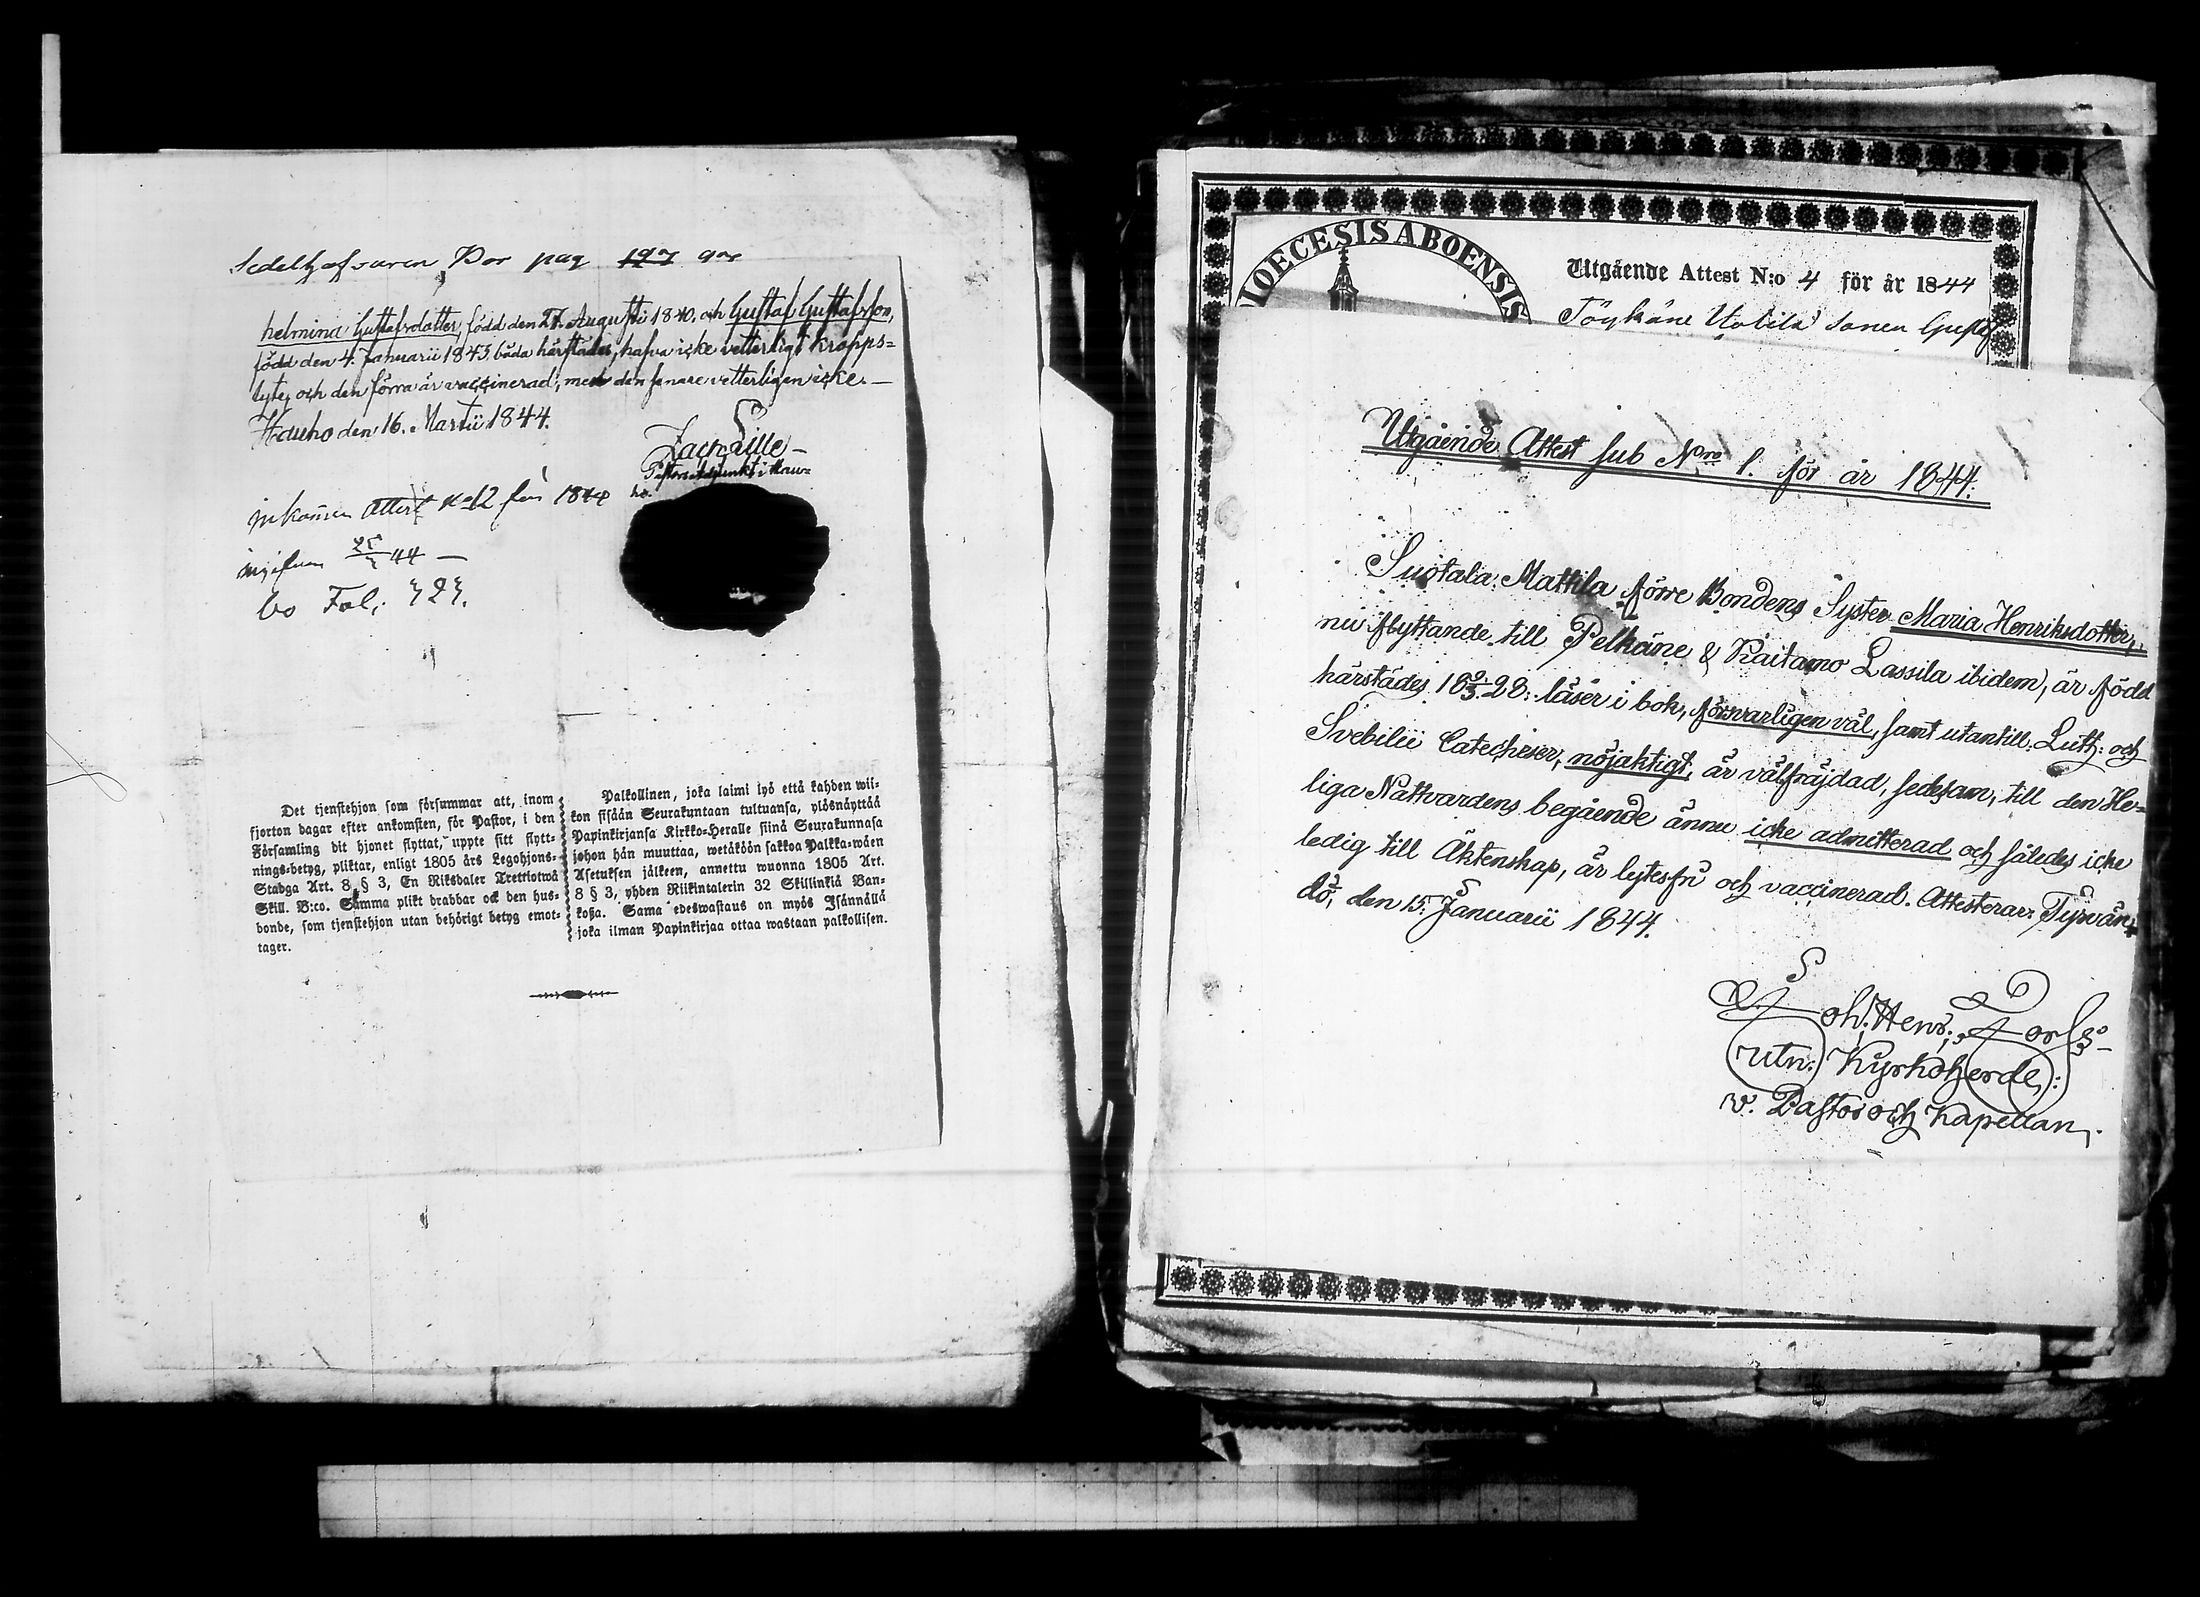 Sedelhafvaren Por pag 197 
helmina Gustafsdotter, född den 27. Augusti 1840. och Gustaf Gustafsson,
född den 4. Januarii 1843, båda härstädes, hafva icke vetterligt kropps-
lyte, och den förra är vaccinerad, men den senare vetterligen icke. —
Hauho den 16. Martii 1844.
Pastors Adjunkt i Hau-
ho.
Inkommen Attest No 12 för 1844
44 —
Fol.
Det tjenstehjon som försummar att, inom
fjorton dagar efter ankomsten, för Pastor, i den
Församling dit hjonet flyttat, uppte sitt flytt-
nings-betyg, pliktar, enligt 1805 års Legohjons-
Stadga Art. 8 § 3, En Riksdaler Trettiotwå
Skill. B:co. Samma plikt drabbar ock den hus-
bonde, som tjenstehjon utan behörigt betyg emot-
tager.
Palkollinen, joka laimi lyö että kahden wii-
kon sisään Seurakuntaan tultuansa, ylösnäyttää
Papinkirjansa Kirkko-Heralle siinä Seurakunnasa
johon hän muuttaa, wetäköön sakkoa Palkka-wäen
Asetuksen jälkeen, annettu wuonna 1805 Art.
8 § 3, yhden Riikintalerin 32 Skillinkiä Ban-
koßa. Sama edeswastaus on myös Isännällä
joka ilman Papinkirjaa ottaa wastaan palkollisen.
IOECESIS ABOENSIS
Utgående Attest N:o 4 för år 1844
Töykäne Uotila sonen Gustaf
Utgående Attest sub Nro 1. för år 1844.
Suotala Mattila förre Bondens Syster Maria Henriksdotter,
nu flyttande till Pelkäne & Raitamo Lassila ibidem, är född
härstädes 18 9/3 28: läser i bok, försvarligen väl, samt utantill Luth: och
Svebilii Catecheser, nöjaktigt, är välfräjdad, sedesam, till den He-
liga Nattvardens begående ännu icke admitterad och således icke
ledig till Äktenskap, är lytesfri och vaccinerad. Attesterar: Tyrvän-
dö, den 15. Januarii 1844.
Joh: Henr:
utn: Kyrkoherde,
v. Pastor och Kapellan.